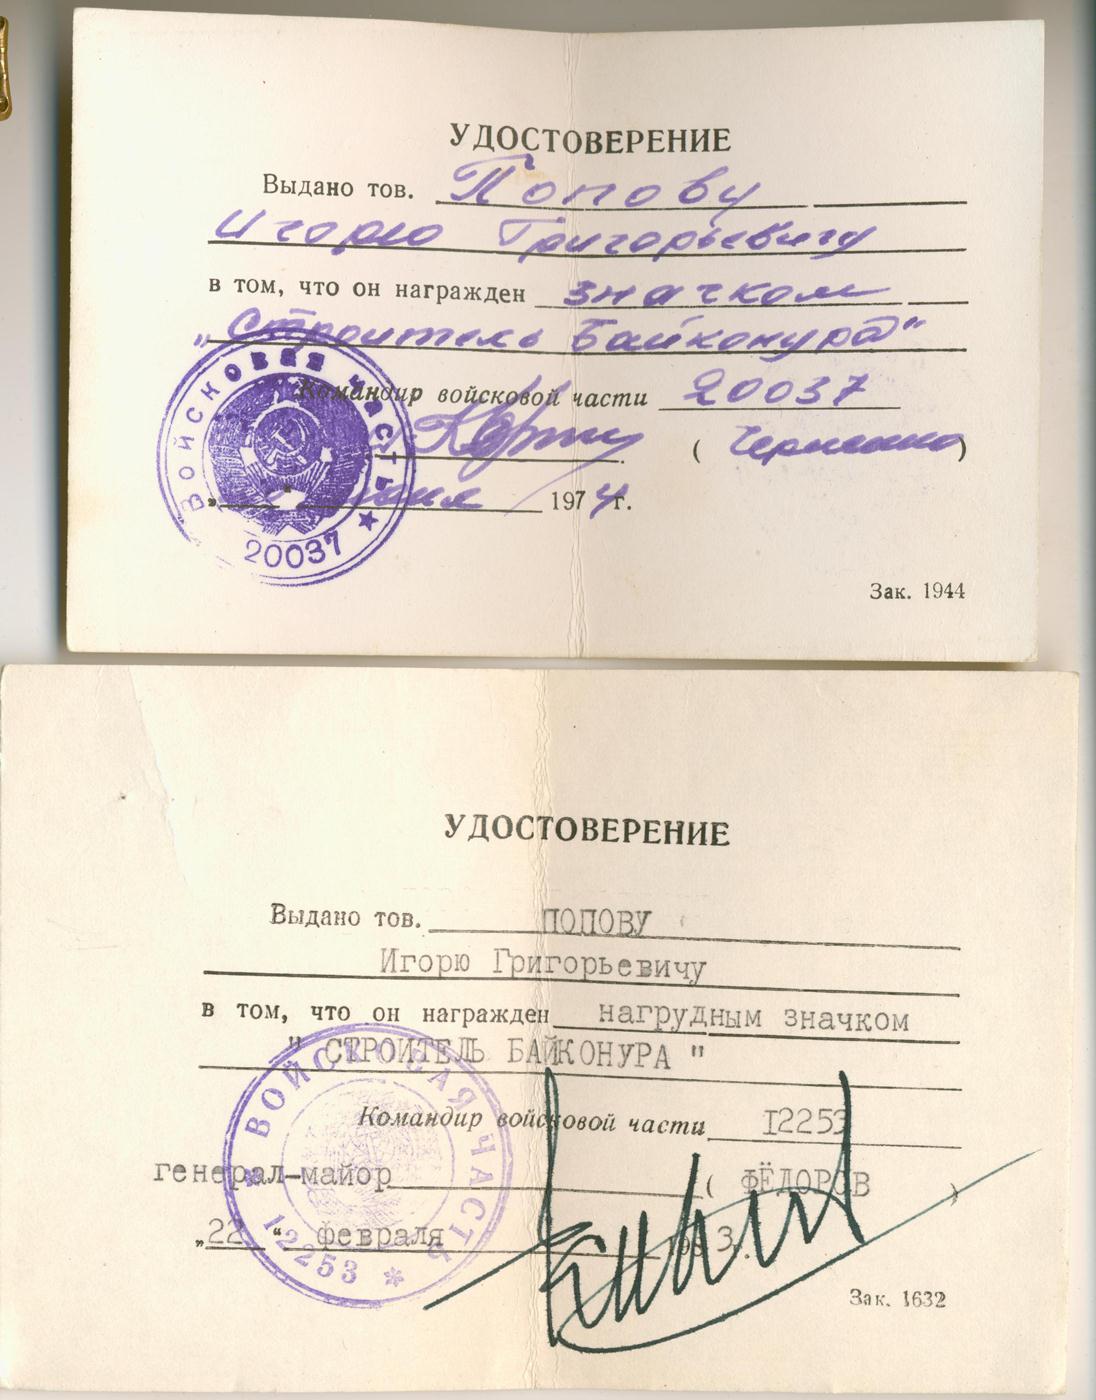 УДОСТОВЕРЕНИЕ
Выдано тов. Попову
Игорю Григорьевичу
в том, что он награжден значком
„Строитель Байконура"
Командир войсковой части 20037
( )
„ " 1974 г.
ВОЙСКОВАЯ ЧАСТЬ ★
20037
Зак. 1944
УДОСТОВЕРЕНИЕ
Выдано тов. ПОПОВУ
Игорю Григорьевичу
в том, что он награжден нагрудным значком
" СТРОИТЕЛЬ БАЙКОНУРА "
Командир войсковой части I2253
генерал-майор ( ФЁДОРОВ )
„22 " февраля
ВОЙСКОВАЯ ЧАСТЬ
* 12253 *
Зак. 1632